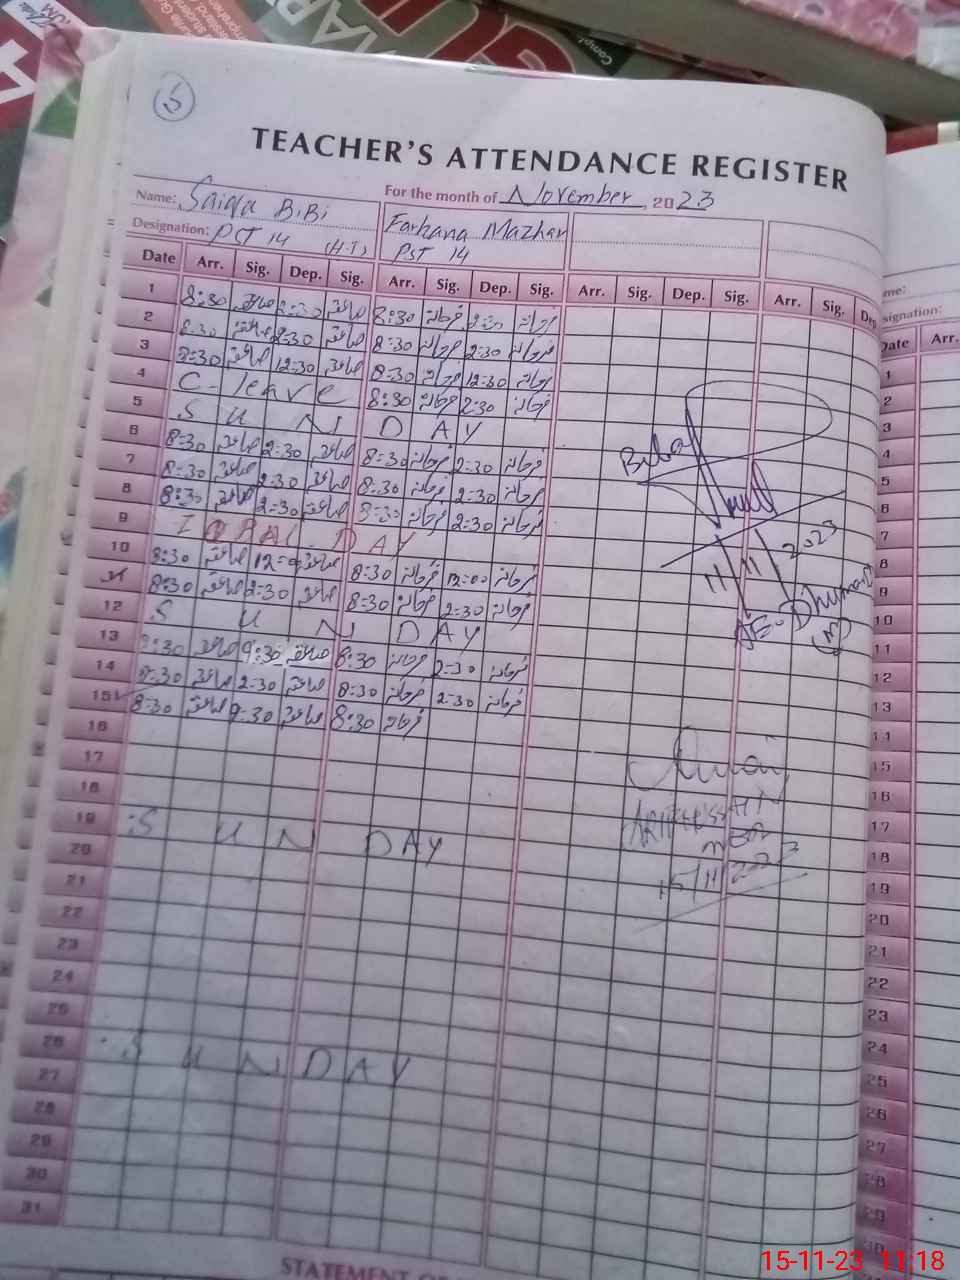 5
TEACHER'S ATTENDANCE REGISTER
Name: Saiqa BiBi For the month of November, 2023
Designation: PST 14 (H.T) Farhana Mazhar
PST 14
Date Arr. Sig. Dep. Sig. Arr. Sig. Dep. Sig. Arr. Sig. Dep. Sig. Arr. Sig. Dep
1 8:30 صائقہ 2:30 صائقہ 8:30 فرحانہ 2:30 فرحانہ
2 8:30 صائقہ 2:30 صائقہ 8:30 فرحانہ 2:30 فرحانہ
3 8:30 صائقہ 12:30 صائقہ 8:30 فرحانہ 12:30 فرحانہ
4 C-leave 8:30 فرحانہ 2:30 فرحانہ
5 SUNDAY
6 8:30 صائقہ 2:30 صائقہ 8:30 فرحانہ 2:30 فرحانہ
7 8:30 صائقہ 2:30 صائقہ 8:30 فرحانہ 2:30 فرحانہ
8 8:30 صائقہ 2:30 صائقہ 8:30 فرحانہ 2:30 فرحانہ
9 IQBAL DAY
10 8:30 صائقہ 12:00 صائقہ 8:30 فرحانہ 12:00 فرحانہ
11 8:30 صائقہ 2:30 صائقہ 8:30 فرحانہ 2:30 فرحانہ
12 SUNDAY
13 8:30 صائقہ 9:30 صائقہ 8:30 فرحانہ 2:30 فرحانہ
14 8:30 صائقہ 2:30 صائقہ 8:30 فرحانہ 2:30 فرحانہ
15 8:30 صائقہ 9:30 صائقہ 8:30 فرحانہ
16
17
18
19 SUNDAY
20
21
22
23
24
25
26 SUNDAY
27
28
29
30
31
11/11/2023
(M)
15/11/2023
STATEMENT OF
me:
signation:
Date Arr.
1
2
3
4
5
6
7
8
9
10
11
12
13
14
15
16
17
18
19
20
21
22
23
24
25
26
27
28
29
30
15-11-23 11:18